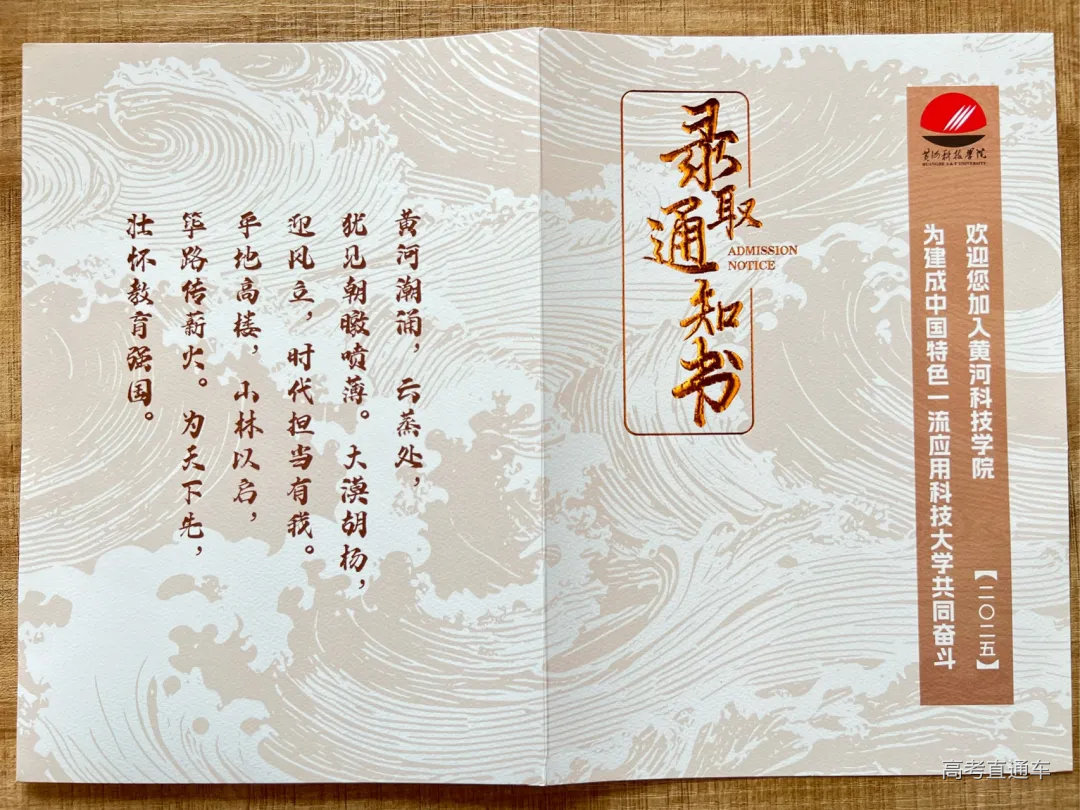 黄河潮涌，云蒸处，
犹见朝暾喷薄。大漠胡杨，
迎风立，时代担当有我。
平地高楼，山林以启，
筚路传薪火。为天下先，
壮怀教育强国。
录取通知书
ADMISSION
NOTICE
黄河科技学院
HUANGHE S & T UNIVERSITY
欢迎您加入黄河科技学院
为建成中国特色一流应用科技大学共同奋斗
【二〇二五】
高考直通车